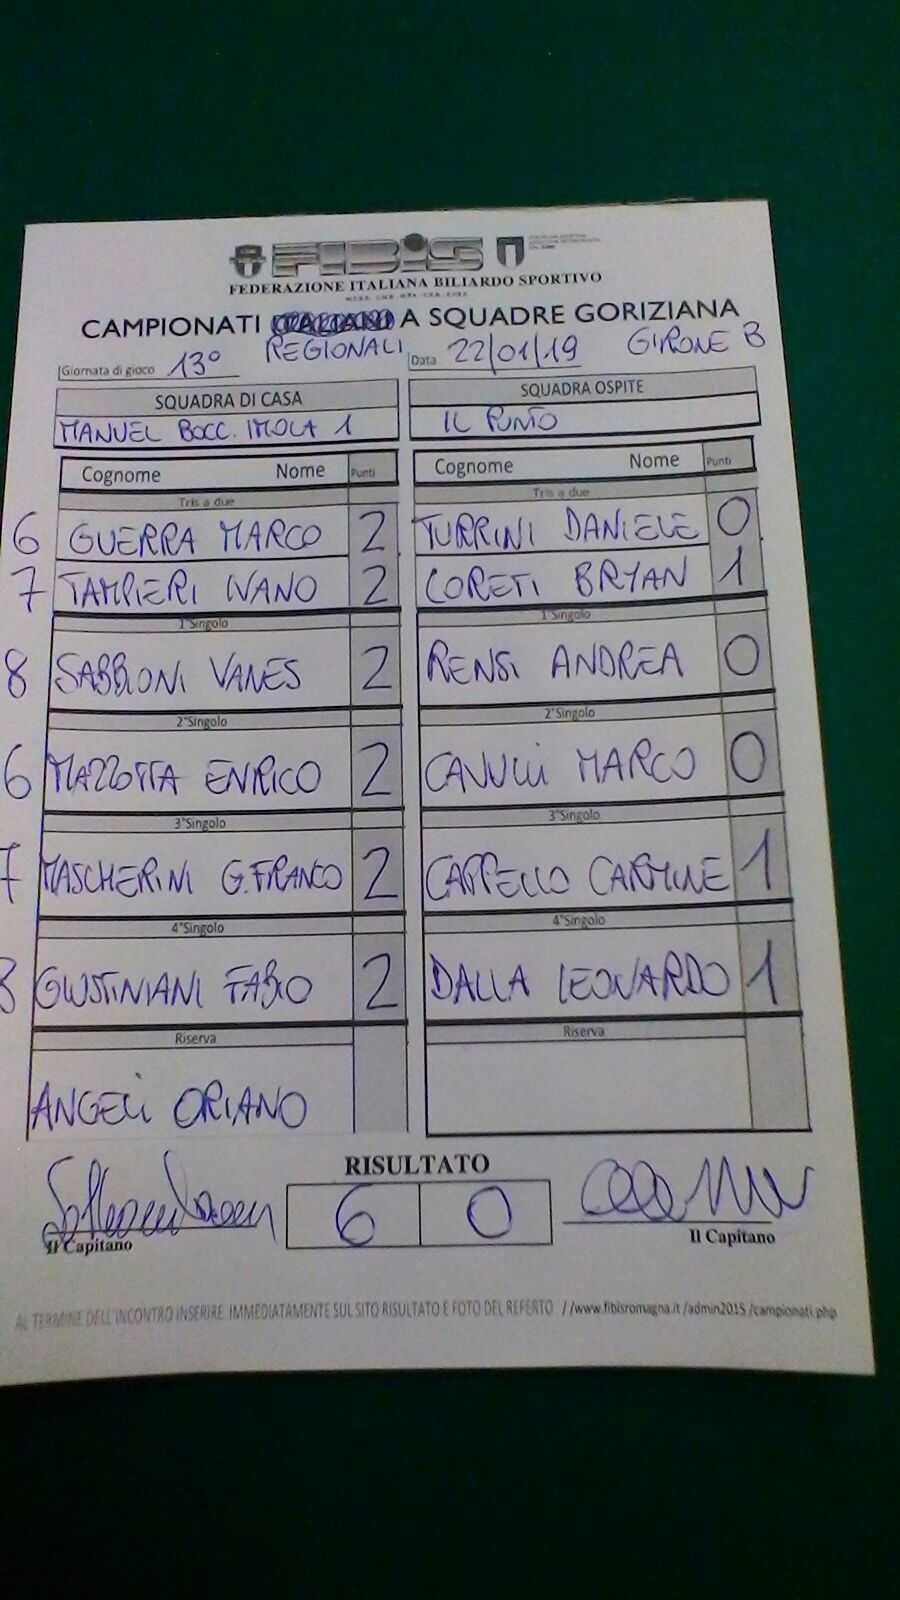 FIBIS
FEDERAZIONE ITALIANA BILIARDO SPORTIVO
CAMPIONATI ITALIANI A SQUADRE GORIZIANA
REGIONALI
Giornata di gioco 13° Data 22/01/19 GIRONE B
SQUADRA DI CASA SQUADRA OSPITE
MANUEL BOCC. IMOLA 1 IL PUNTO
Cognome Nome Punti Cognome Nome Punti
Tris a due Tris a due
6 GUERRA MARCO 2 TURRINI DANIELE 0
7 TAMPIERI IVANO 2 LORETI BRYAN 1
1°Singolo 1°Singolo
8 SABBIONI VANES 2 RENSI ANDREA 0
2°Singolo 2°Singolo
6 MAZZOTTA ENRICO 2 MARCO 0
3°Singolo 3°Singolo
7 MASCHERINI G.FRANCO 2 CAPPELLO CARMINE 1
4°Singolo 4°Singolo
GIUSTINIANI FABIO 2 DALLA LEONARDO 1
Riserva Riserva
ANGELI ORIANO
RISULTATO
6 0
Il Capitano Il Capitano
AL TERMINE DELL'INCONTRO INSERIRE IMMEDIATAMENTE SUL SITO RISULTATO E FOTO DEL REFERTO //www.fibisromagna.it/admin2015/campionati.php